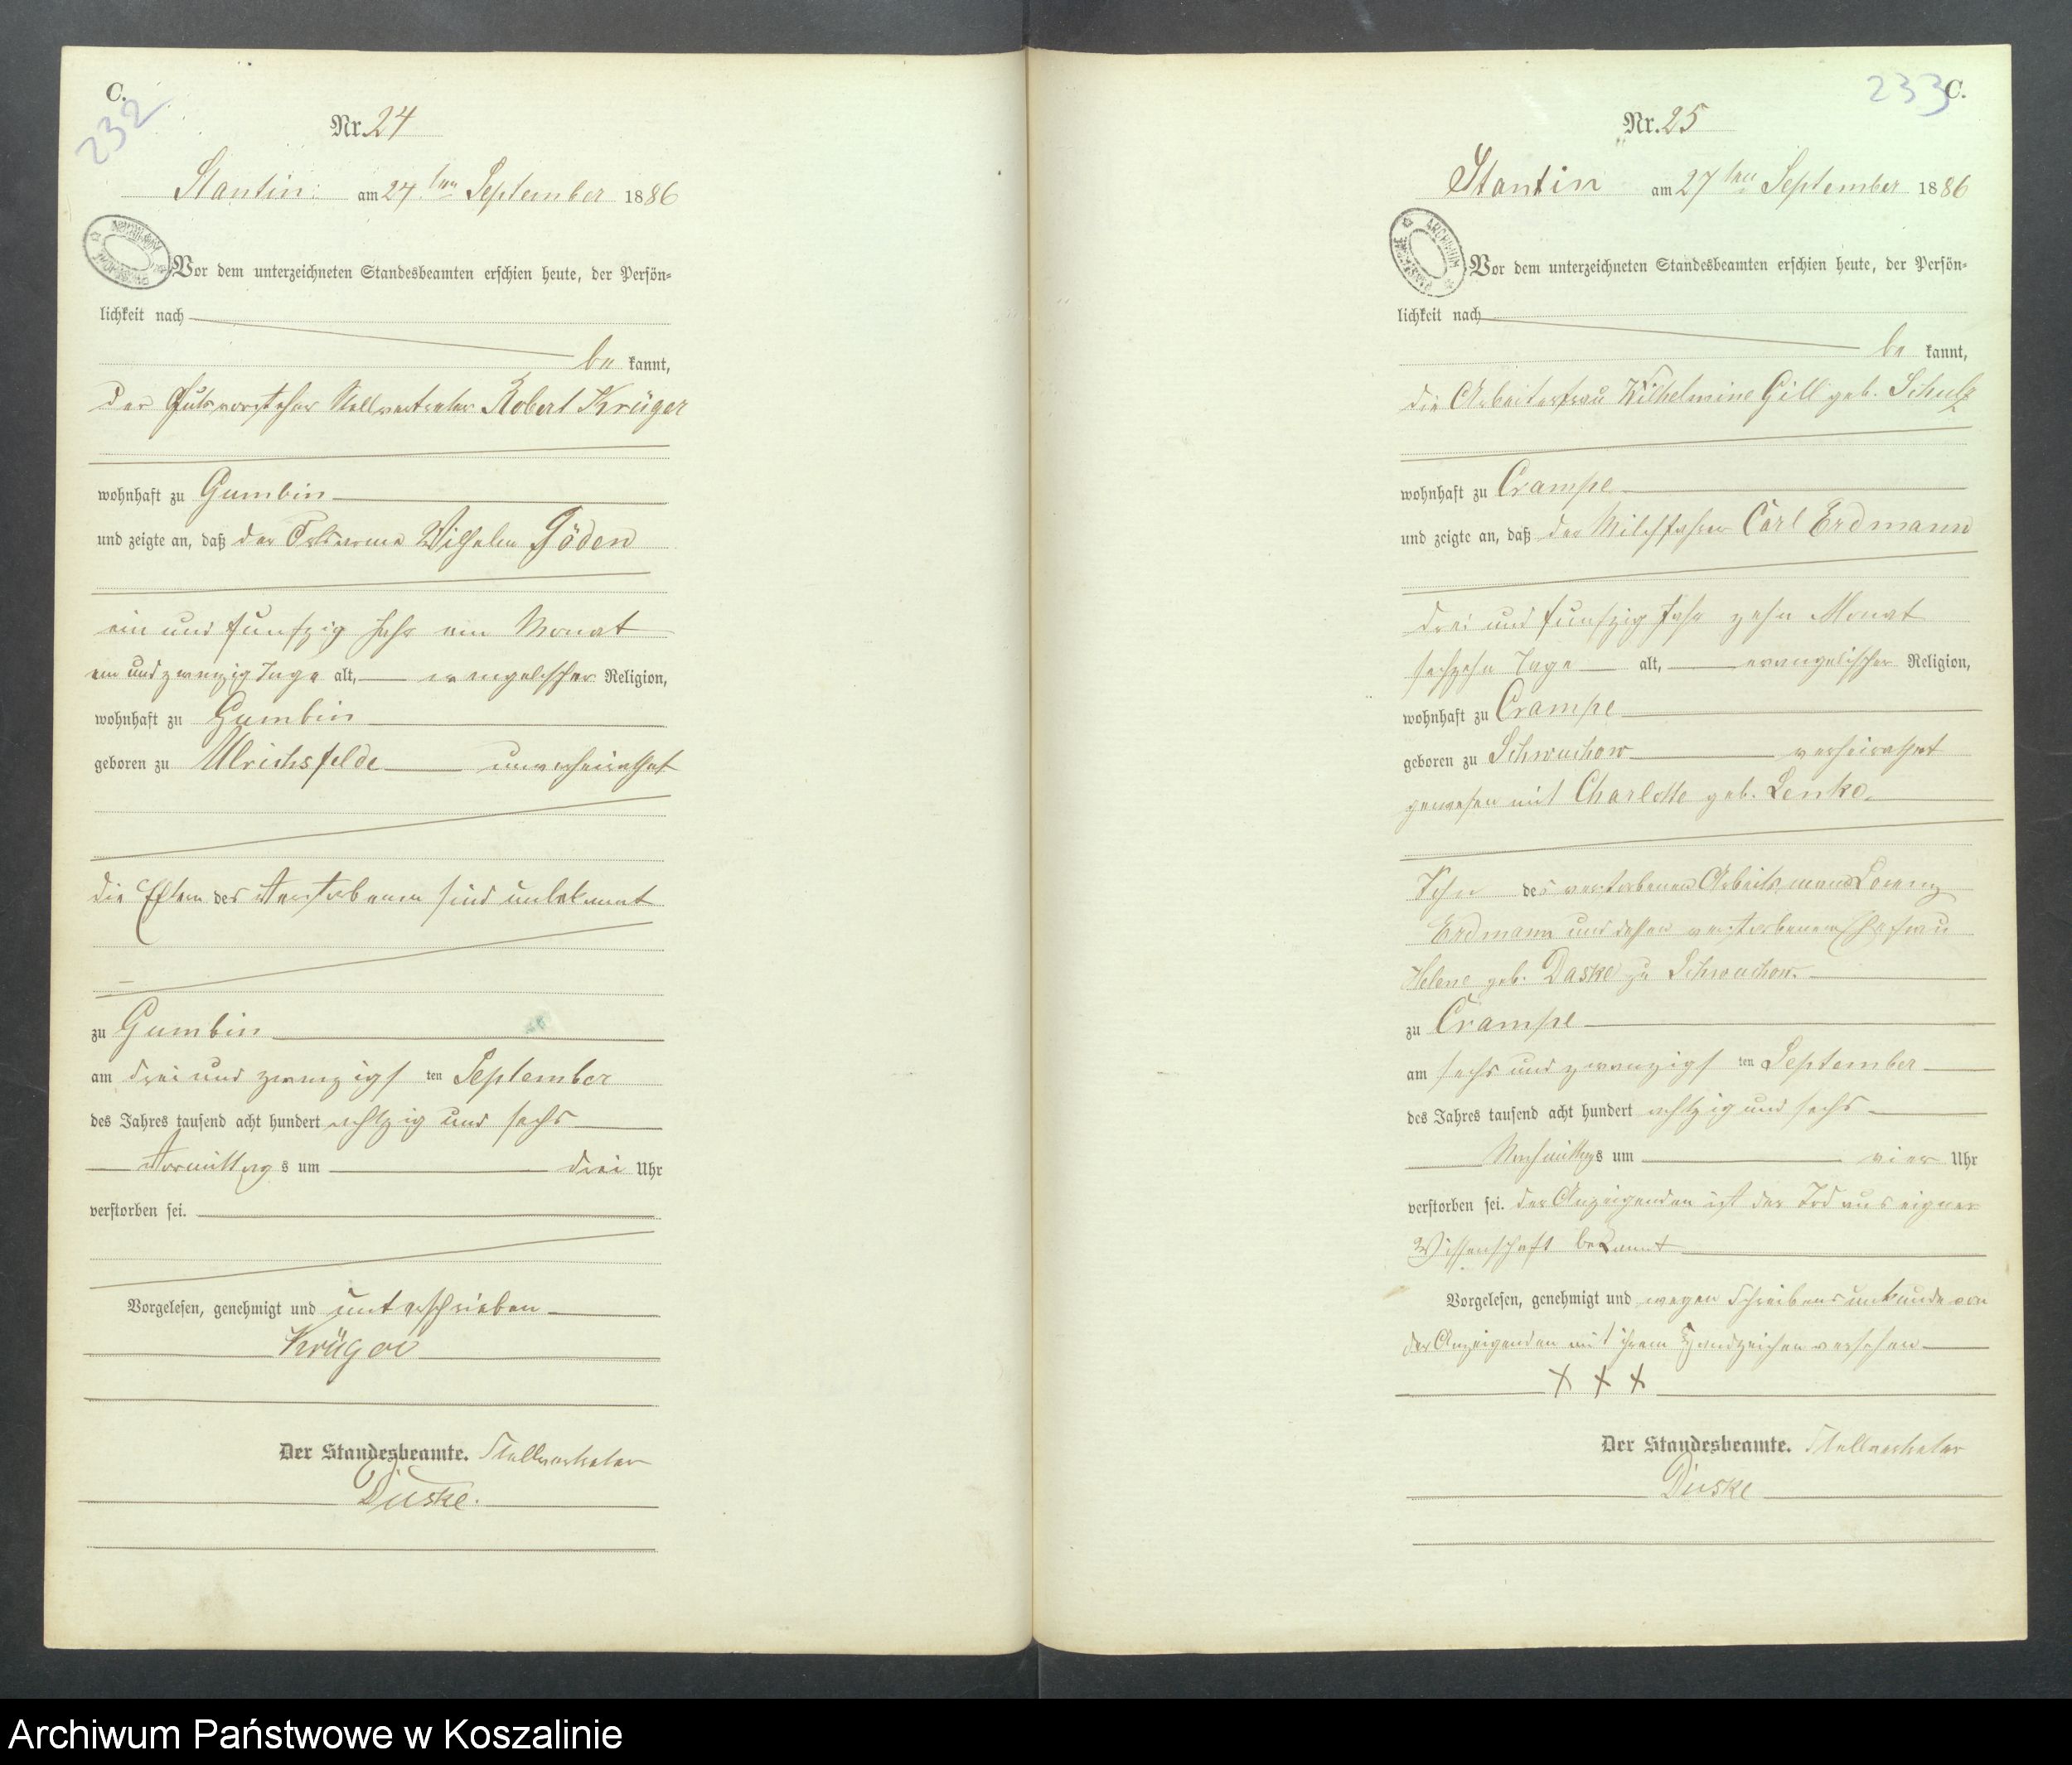 C.
232
Nr. 24
Stantin am 24 ten September 1886
Vor dem unterzeichneten Standesbeamten erschien heute, der Persön-
lichkeit nach
be kannt,
der Gutsvorsteher Stellvertreter Robert Krüger
wohnhaft zu Gumbin
und zeigte an, daß der Ortsarme Wilhelm Göden
ein und funfzig Jahr ein Monat
ein und zwanzig Tage alt, evangelischer Religion,
wohnhaft zu Gumbin
geboren zu Ulrichsfelde unverheirathet
die Eltern des Verstorbenen sind unbekannt
zu Gumbin
am drei und zwanzigs ten September
des Jahres tausend acht hundert achtzig und sechs
Vormittags um drei Uhr
verstorben sei.
Vorgelesen, genehmigt und unterschrieben
Krüger
Der Standesbeamte. Stellvertreter
Duske.
233
C.
Nr. 25
Stantin am 27 ten September 1886
ARCHIWUM
Vor dem unterzeichneten Standesbeamten erschien heute, der Persön-
lichkeit nach
be kannt,
die Arbeiterfrau Wilhelmine Gill geb. Schulz
wohnhaft zu Crampe
und zeigte an, daß der Milchfahrer Carl Erdmann
drei und funfzig Jahr zehn Monat
sechzehn Tage alt, evangelischer Religion,
wohnhaft zu Crampe
geboren zu Schwuchow verheirathet
gewesen mit Charlotte geb. Lenke.
Sohn des verstorbenen Arbeitsmann Lorenz
Erdmann und dessen verstorbenen Ehefrau
Helene geb. Daske zu Schwuchow.
zu Crampe
am sechs und zwanzigs ten September
des Jahres tausend acht hundert achtzig und sechs
Nachmittags um vier Uhr
verstorben sei. der Anzeigenden ist der Tod aus eigner
Wissenschaft bekannt
Vorgelesen, genehmigt und wegen Schreibensunkunde von
der Anzeigenden mit ihrem Handzeichen versehen
+ + +
Der Standesbeamte. Stellvertreter
Duske
Archiwum Państwowe w Koszalinie